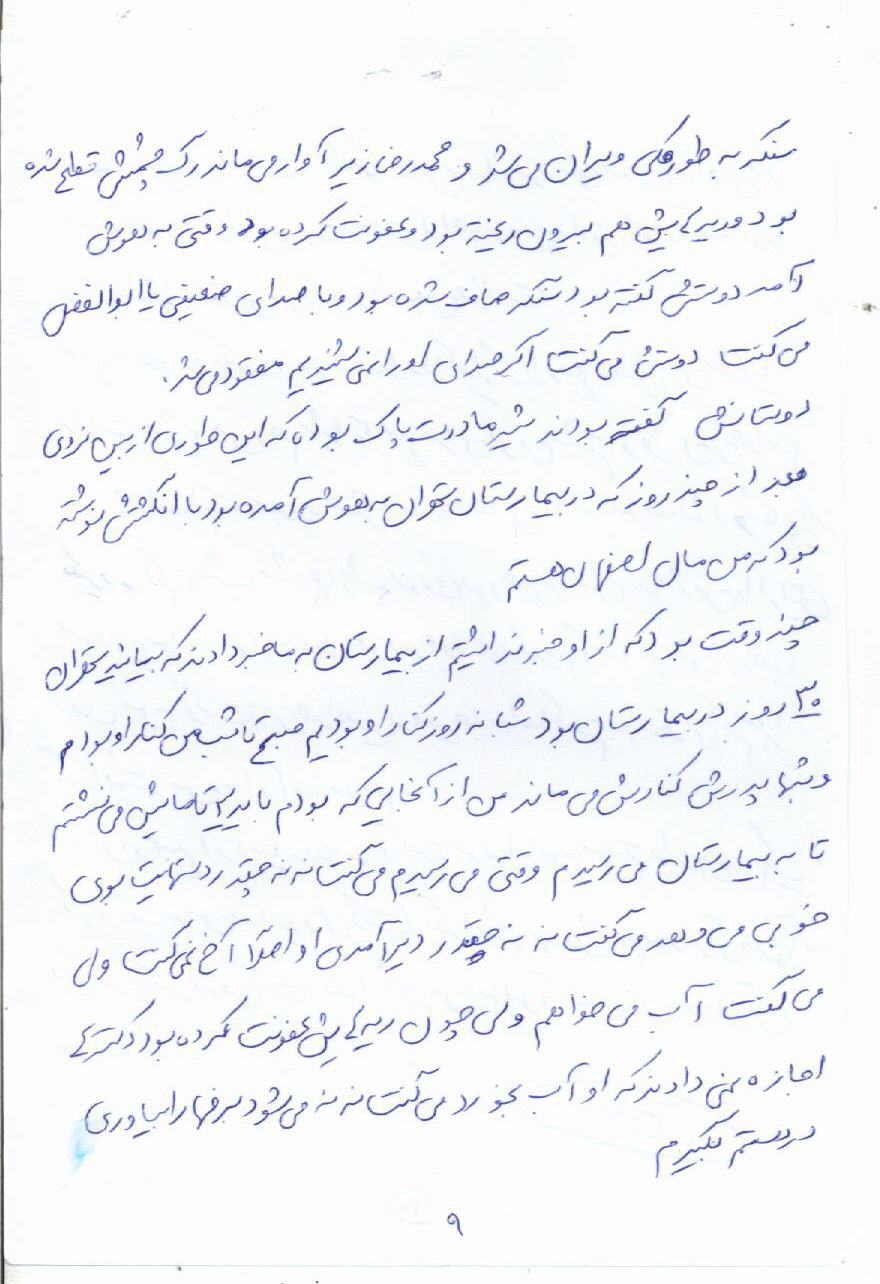 سنگر به طور کلی ویران می شد و محمدرضا زیر آوار می ماند رگ چشمش قطع شده
بود و ریه هایش هم بیرون ریخته بود و عفونت کرده بود وقتی به هوش
آمد دوستش گفته بود سنگر صاف شده بود و با صدای ضعیفی یا ابوالفضل
می گفت دوستش می گفت اگر صدای او را نمی شنیدیم مفقود می شد.
دوستانش گفته بودند شیر مادرت پاک بوده که این طوری از بین نروی
بعد از چند روز که در بیمارستان تهران به هوش آمده بود با انگشتش نوشته
بود که من مال اصفهان هستم
چند وقت بود که از او خبر نداشتیم از بیمارستان به ما خبر دادند که بیایید تهران
۳۰ روز در بیمارستان بود شبانه روز کنار او بودیم صبح تا شب من کنار او بودم
و شبها پدرش کنارش می ماند من از آنجایی که بودم باید ۳ تا ماشین می نشستم
تا به بیمارستان می رسیدم وقتی می رسیدم می گفت ننه چقدر دستهایت بوی
خوبی می دهد می گفت ننه چقدر دیر آمدی او اصلا آخ نمی گفت ولی
می گفت آب می خواهم ولی چون ریه هایش عفونت کرده بود دکترها
اجازه نمی دادند که او آب بخورد می گفت ننه می شود برفها را بیاوری
دردستم بگیرم
۹